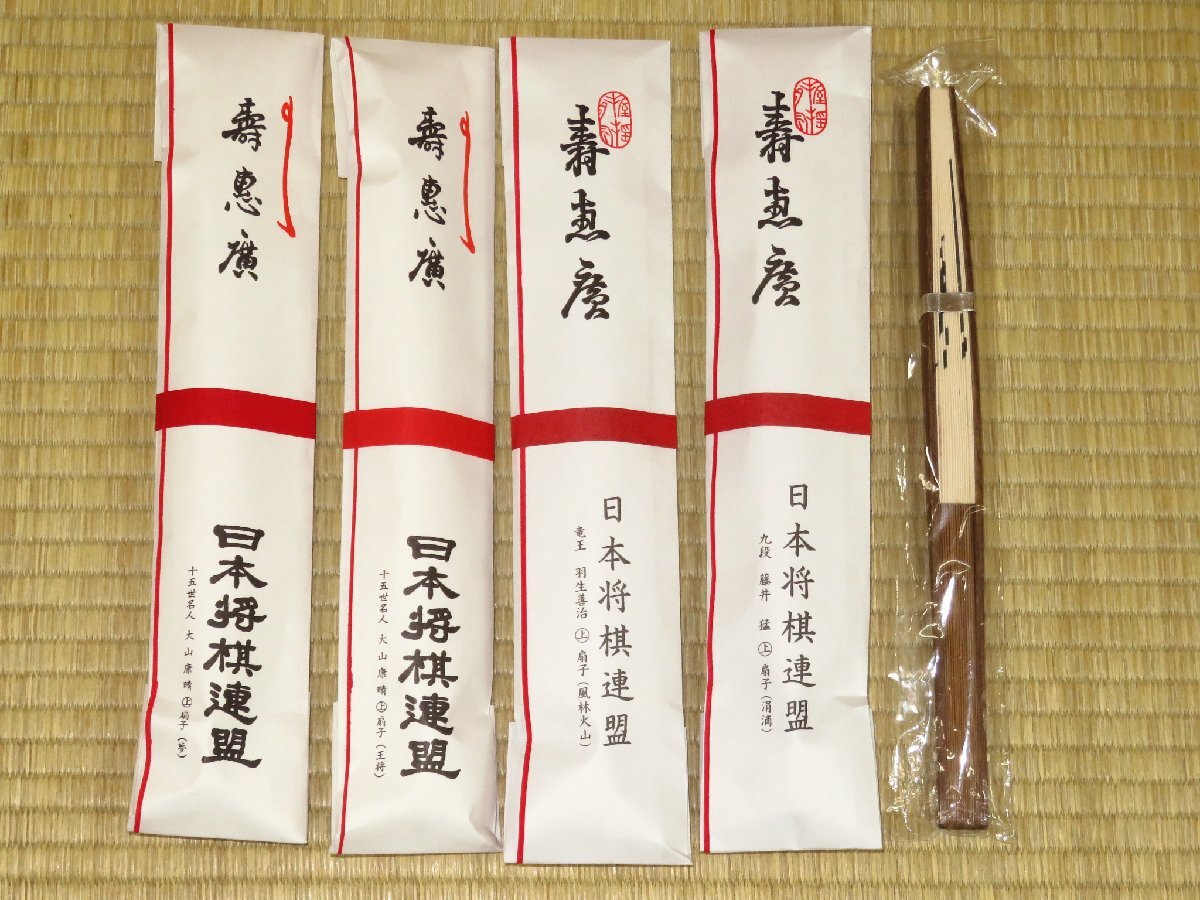 壽惠廣
日本将棋連盟
十五世名人 大山康晴㊤扇子(夢)
壽惠廣
日本将棋連盟
十五世名人 大山康晴㊤扇子(王将)
壽恵廣
日本将棋連盟
竜王 羽生善治㊤扇子(風林火山)
壽恵廣
日本将棋連盟
九段 藤井 猛㊤扇子(涓滴)